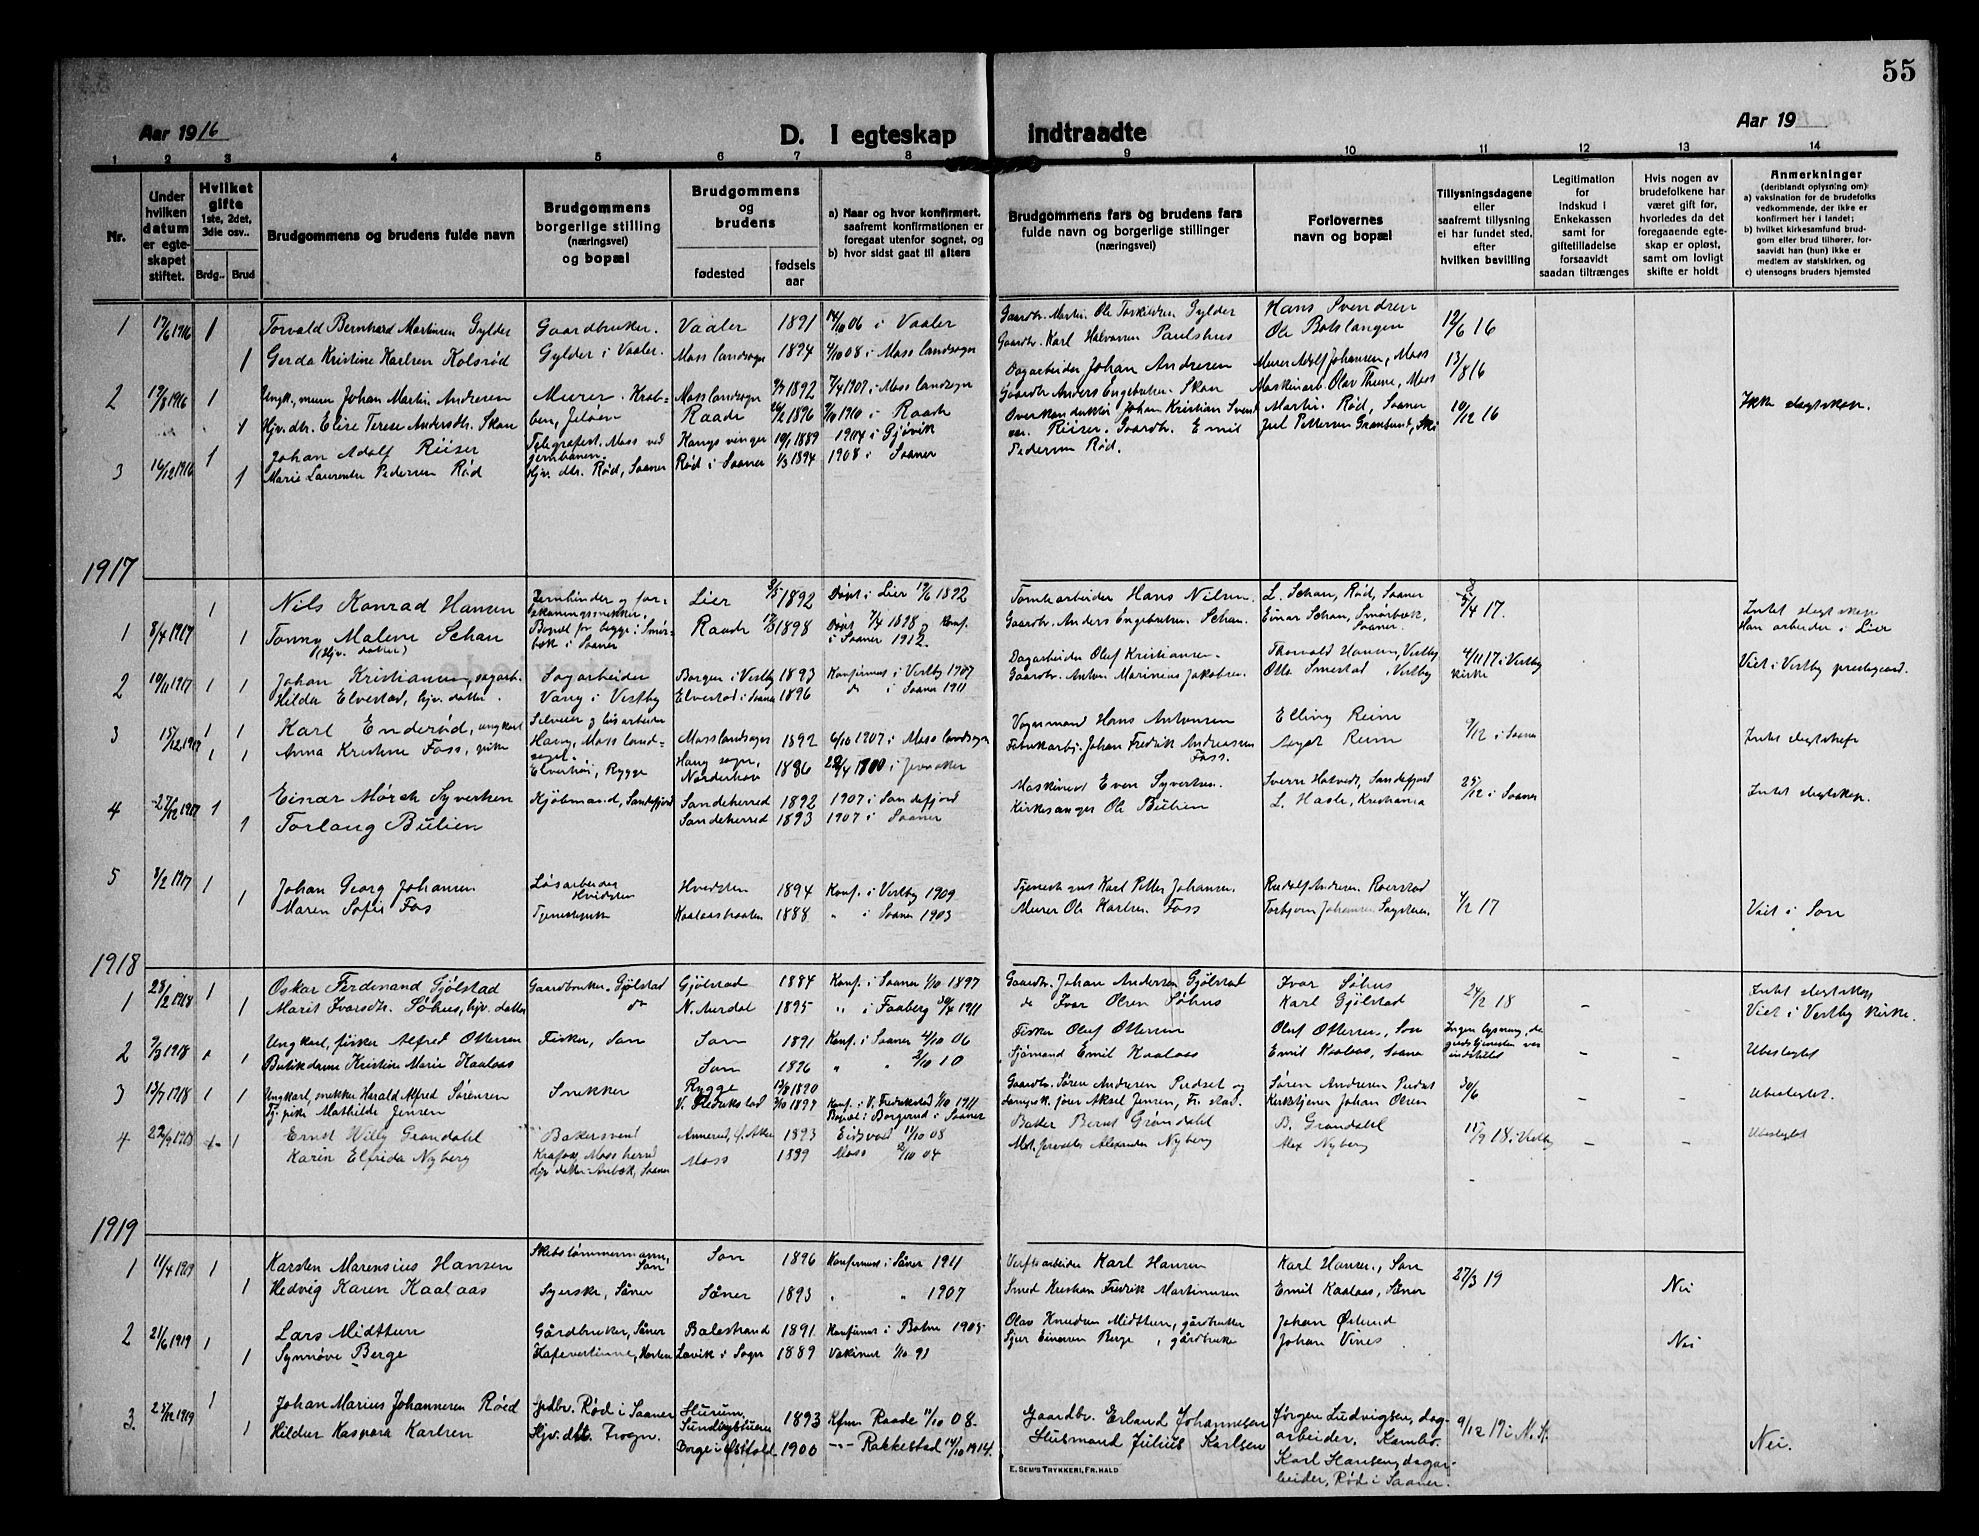 55
Aar 1916
D. I egteskap indtraadte
Aar 19
1 2 3 4 5 6 7 8 9 10 11 12 13 14
Nr.
Under hvilken datum er egteskapet stiftet.
Hvilket gifte 1ste, 2det, 3die osv..
Brdg..
Brud
Brudgommens og brudens fulde navn
Brudgommens borgerlige stilling (næringsvei) og bopæl
Brudgommens og brudens
fødested
fødsels aar
a) Naar og hvor konfirmert, saafremt konfirmationen er foregaat utenfor sognet, og
b) hvor sidst gaat til alters
Brudgommens fars og brudens fars fulde navn og borgerlige stillinger (næringsvei)
Forlovernes navn og bopæl
Tillysningsdagene eller saafremt tillysning ei har fundet sted, efter hvilken bevilling
Legitimation for indskud i Enkekassen samt for giftetilladelse forsaavidt saadan tiltrænges
Hvis nogen av brudefolkene har været gift før, hvorledes da det foregaaende egteskap er opløst, samt om lovligt skifte er holdt
Anmerkninger (deriblandt oplysning om)
a) vaksination for de brudefolks vedkommende, der ikke er konfirmert her i landet;
b) hvilket kirkesamfund brudgom eller brud tilhører, forsaavidt han (hun) ikke er medlem av statskirken, og
c) utensogns bruders hjemsted
1 17/6 1916 1 Torvald Bernhard Martinsen Gylder Gaardbruker. Vaaler 1891 14/10 06 i Vaaler Gaardbr. Martin Ole Torkildsen Gylder Hans Svendsen 12/6 16
1 Gerda Kristine Karlsen Kolsrød Gylder i Vaaler. Moss landsogn 1894 4/10 08 i Moss landsogn Gaardbr. Karl Halvorsen Paulshus Ole Botslangen
2 19/8 1916 1 Ungk., murer Johan Martin Andresen Murer. Krobben, Jeløen Moss landsogn 1892 7/4 1907 i Moss landsogn Dagarbeider Johan Andresen Murer Adolf Johansen, Moss 13/8 16 Ikke slegtskap.
1 Gjv. dtr. Elise Terese Andersdtr. Skan Raade 1896 1910 i Raade Gaardbr. Anders Engebretsen Skan Maskinarb. Olav Thune, Moss
3 16/12 1916 1 Johan Adolf Riiser Telegrafest. Moss ved jernbanen. Kongsvinger 10/1 1889 1904 i Gjøvik Overkonduktør Johan Kristian Riiser. Martin Rød, Saaner 10/12 16
1 Marie Laurentse Pedersen Rød Gjv. dtr. Rød, Saaner Rød i Saaner 1/3 1894 1908 i Saaner Gaardbr. Emil Pedersen Rød. Juel Pettersen
1917
1 8/4 1917 1 Nils Konrad Hansen Lier 1892 Døpt i Lier 19/6 1892 Tomtearbeider Hans Nilsen L. Schan, Rød, Saaner /4 17. Intet slegtskap
1 Tonny Malene Schan (Gjv. datter) Bopæl for begge i Smørbæk i Saaner Raade 1898 Døpt 7/4 1898 Konf. i Saaner 1912. Gaardbr. Anders Engebretsen Schan. Einar Schan, Smørbæk, Saaner. Han arbeider i Lier
2 10/11 1917 1 1 Johan Kristiansen, sagarb. Sagarbeider Borgen i Vestby 1893 Konfirmert i Vestby 1907 Dagarbeider Oluf Kristiansen. Thorvald Hansen, Vestby 4/11 17 i Vestby kirke Viet i Vestby prestegaard
Hilda Elvestad, gjv. datter. Vang i Vestby Elvestad i Saaner 1896 do i Saaner 1911 Gaardbr. Anton Marinius Jakobsen Otto Smestad i Vestby
3 15/12 1917 1 1 Karl Enderød, ungkarl Selveier og løsarbeider Haug, Moss landsogn Moss landsogn 1892 6/10 1907 i Moss landsogn Vognmand Hans Antonsen Elling Reim 9/12 i Saaner Intet slegtskap
1 1 Anna Kristine Foss, pike Elverhøi, Rygge Haug sogn, Norderhov 1886 i Jevnaker Fabrikarb. Johan Fredrik Andreassen Foss. Aagot Reim
4 27/12 1917 1 Einar Mørch Syvertsen Kjøbmand, Sandefjord Sandeherred 1892 1907 i Sandefjord Maskinist Even Syvertsen. Sverre Hotvedt, Sandefjord 25/12 i Saaner Intet slegtskap.
1 Torlaug Bülien Sandeherred 1893 1907 i Saaner Kirkesanger Ole Bülien L. Hasle, Kristiania
5 8/2 1917 1 Johan Georg Johansen Løsarbeider Hvidsten Hvidsten 1894 Konf. i Vestby 1909 Karl Petter Johansen. Rudolf Andersen Roerstad 4/2 17 Viet i Son
1 Maren Sofie Foss Tjenestepike Kaalaastraaten 1888 " i Saaner 1903 Murer Ole Karlsen Foss Torbjørn Johansen
1918
1 23/2 1918 1 Oskar Ferdinand Gjølstad Gaardbruker. Gjølstad Gjølstad 1884 Konf. i Saaner 1/10 1897 Gaardbr. Johan Andersen Gjølstad Ivar Søhus 24/2 18 - - Intet slegtskap
1 Marit Ivarsdtr. Søhus, gjv. datter do N. Aurdal 1895 " i Faaberg 1911 do Ivar Olsen Søhus Karl Gjølstad Viet i Vestby kirke.
2 9/3 1918 1 Ungkarl, fisker Alfred Ottersen Fisker, Son Son 1891 Konf. i Saaner 4/10 06 Fisker Oluf Ottersen Oluf Ottersen, Son Ingen lysning, da gudstjenesten var indstillet - - Ubeslegtet
1 Butikdame Kristine Marie Kaalaas Son 1896 " " 2/10 10 Sjømand Emil Kaalaas Emil Kaalaas, Saaner
3 13/7 1918 1 1 Ungkarl, snekker Harald Alfred Sørensen Snekker Rygge 1890 Gaardbr. Søren Andersen Søren Andersen 30/6 Ubeslegtet.
Tj. pike Mathilde Jensen V. Fredrikstad 1897 Konf. i V. Fredrikstad 1/10 1911 Bopæl i Borgerud i Saaner Aksel Jensen, Fr. stad. Kirketjener Johan Olsen
4 22/9 1918 1 1 Ernst Willy Grøndahl Bakersvend 1893 Eidsvold 11/10 08 Baker Bernt Grøndahl B. Grøndahl 15/9 18 i Vestby - - Ubeslegtet
Karin Elfrida Nyberg Krafos, Moss herred Gjv. datter Aubæk, Saaner Moss 1889 Moss 2/10 04 Alexander Nyberg Alex Nyberg
1919
1 11/4 1919 1 Karsten Marensius Hansen Skibstømmermann, Son Son 1896 Konfirmert i Såner 1911 Verftsarbeider Karl Hansen Karl Hansen, Son 27/3 19 Nei
1 Hedvig Karen Kaalaas Syerske, Såner Såner 1893 " " 1907 Smed Kristian Fredrik Martinusen Emil Kaalaas, Såner
2 21/6 1919 1 Lars Midttun Gårdbruker, Såner Balestrand 1891 Konfirmert i Botne 1905 Olav Knudsen Midttun, gårdbruker Johan Østlund Nei
1 Synnøve Berge Kafevertinne, Horten Lavik i Sogn 1889 Vaksinert 1/10 91 Sjur Einersen Berge, gårdbruker Johan Vines
3. 25/12 1919 1 Johan Marius Johannesen Røed Grdbr. Rød i Saaner Hurum, Sundbystuene 1893 Kfm. Raade 11/10 08. Gaardbr. Erland Johannesen Jørgen Ludvigsen, dagarbeider, Kambo. 9/12 19 i N. K. Nei.
1 Hildur Kaspara Karlsen Gjv. dtt. Frogn. Borge i Østfold 1900 -"- Rakkestad 14/10 1914. Husmand Julius Karlsen Karl Hansen, dagarbeider, Rød i Saaner.
E. SEM's TRYKKERI, FR.HALD